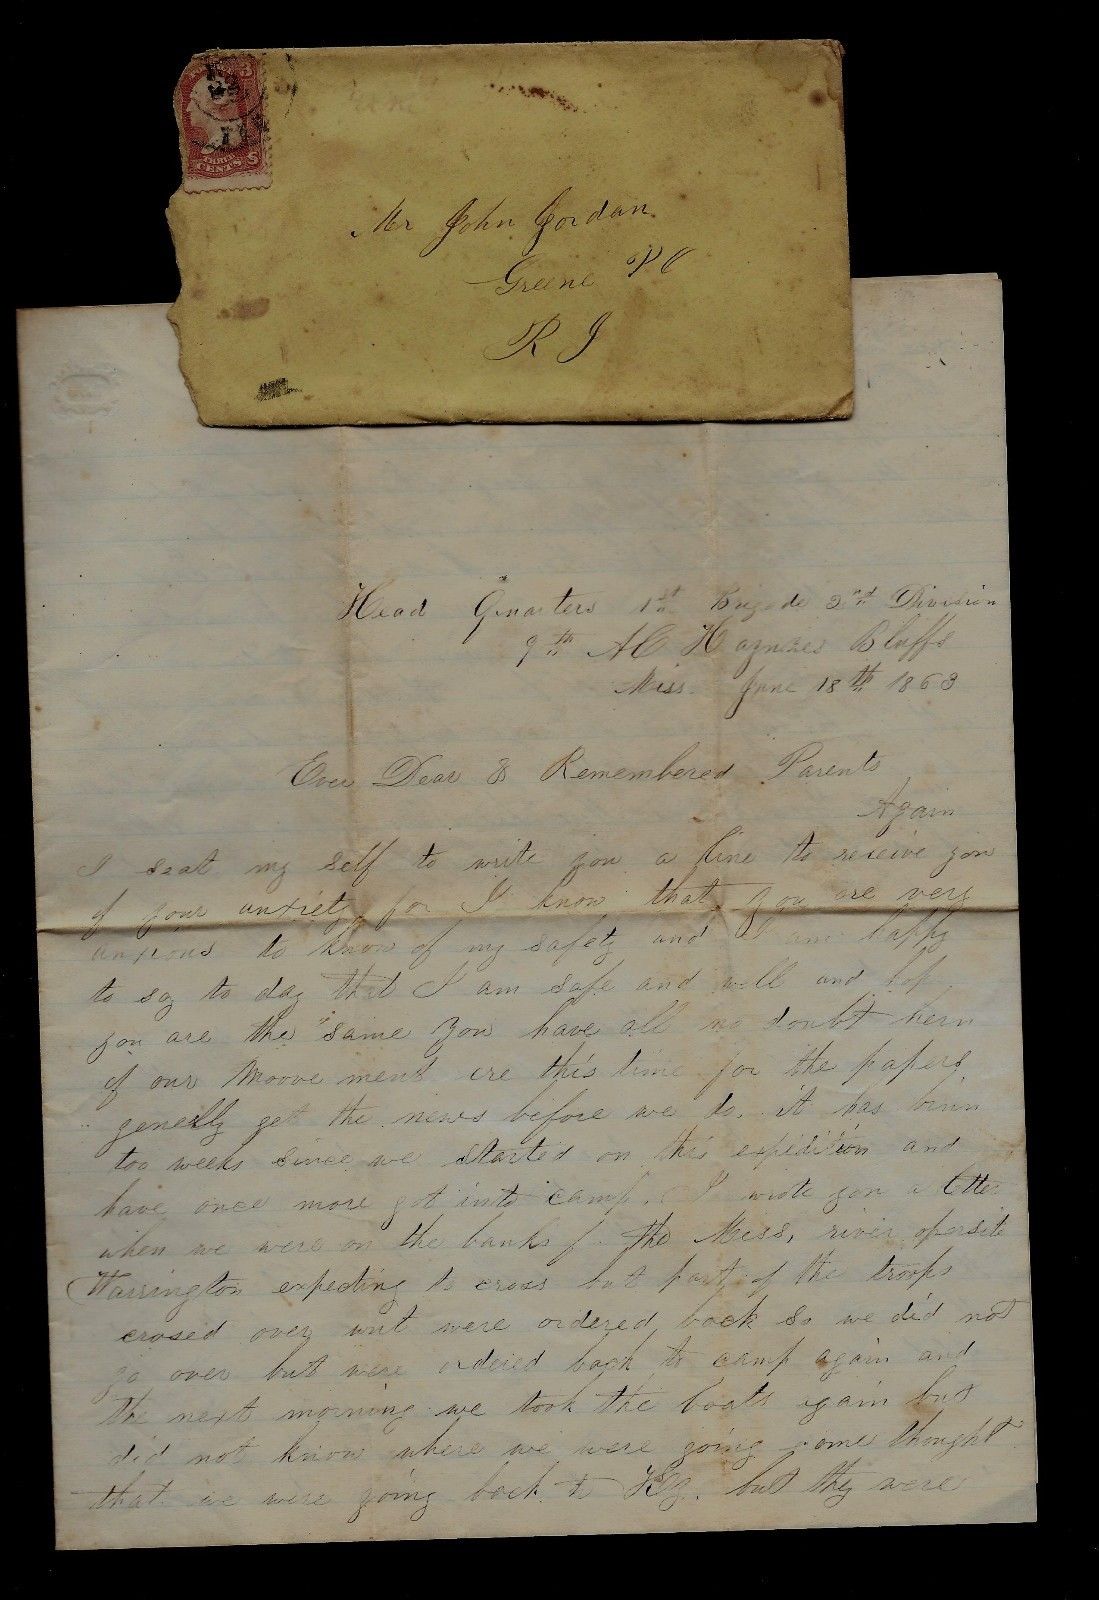 THREE CENTS
Mr John Jordan
Greene PO
R I
Head Quarters 1st Brigade 2nd Division
9th AC Haynees Bluffs
Miss. June 18th 1863
Ever Dear & Remembered Parents
Again
I seat my self to write you a line to reieive you
of your anxiety for I know that you are very
anxious to know of my safety and I am happy
to say to day that I am safe and well and hop
you are the same You have all no doubt hern
of our Moove ment ere this time for the papers
generly get the news before we do. it has binn
too weeks since we started on this expedition and
have once more got into camp. I wrote you a letter
when we were on the banks of the Miss, river opersite
Warrington expecting to cross but part of the troops
crosed over but were ordered back so we did not
go over but were ordered back to camp again and
the next morning we took the boats again but
did not know where we were going some thought
that we were going back to Ky. but they were